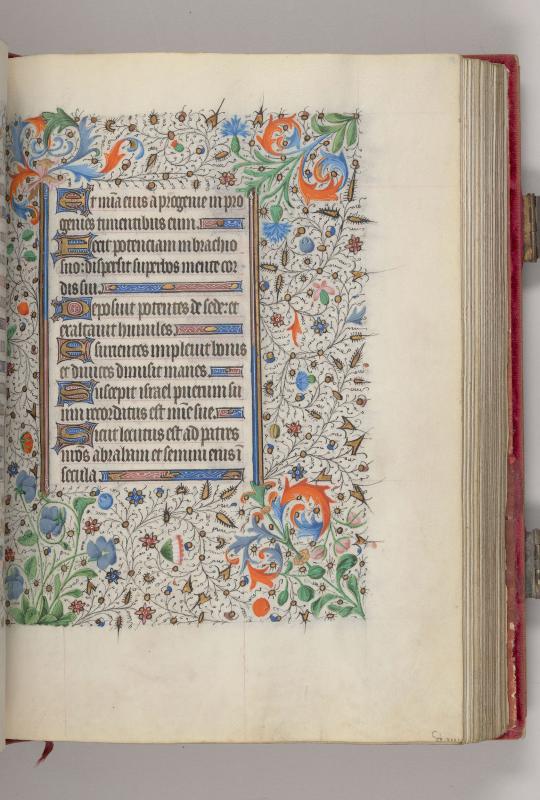 Et mīa eius a progenie in pro
genies timentibus eum.
Fecit potenciam in brachio
suo: dispersit superbos mente cor
dis sui.
Deposuit potentes de sede: et
exaltauit humiles.
Esurientes impleuit bonis
et diuites dimisit inanes.
Suscepit israel puerum su
um recordatus est mīe sue.
Sicut locutus est ad patres
nr̄os abraham et semini eius ī
secula.